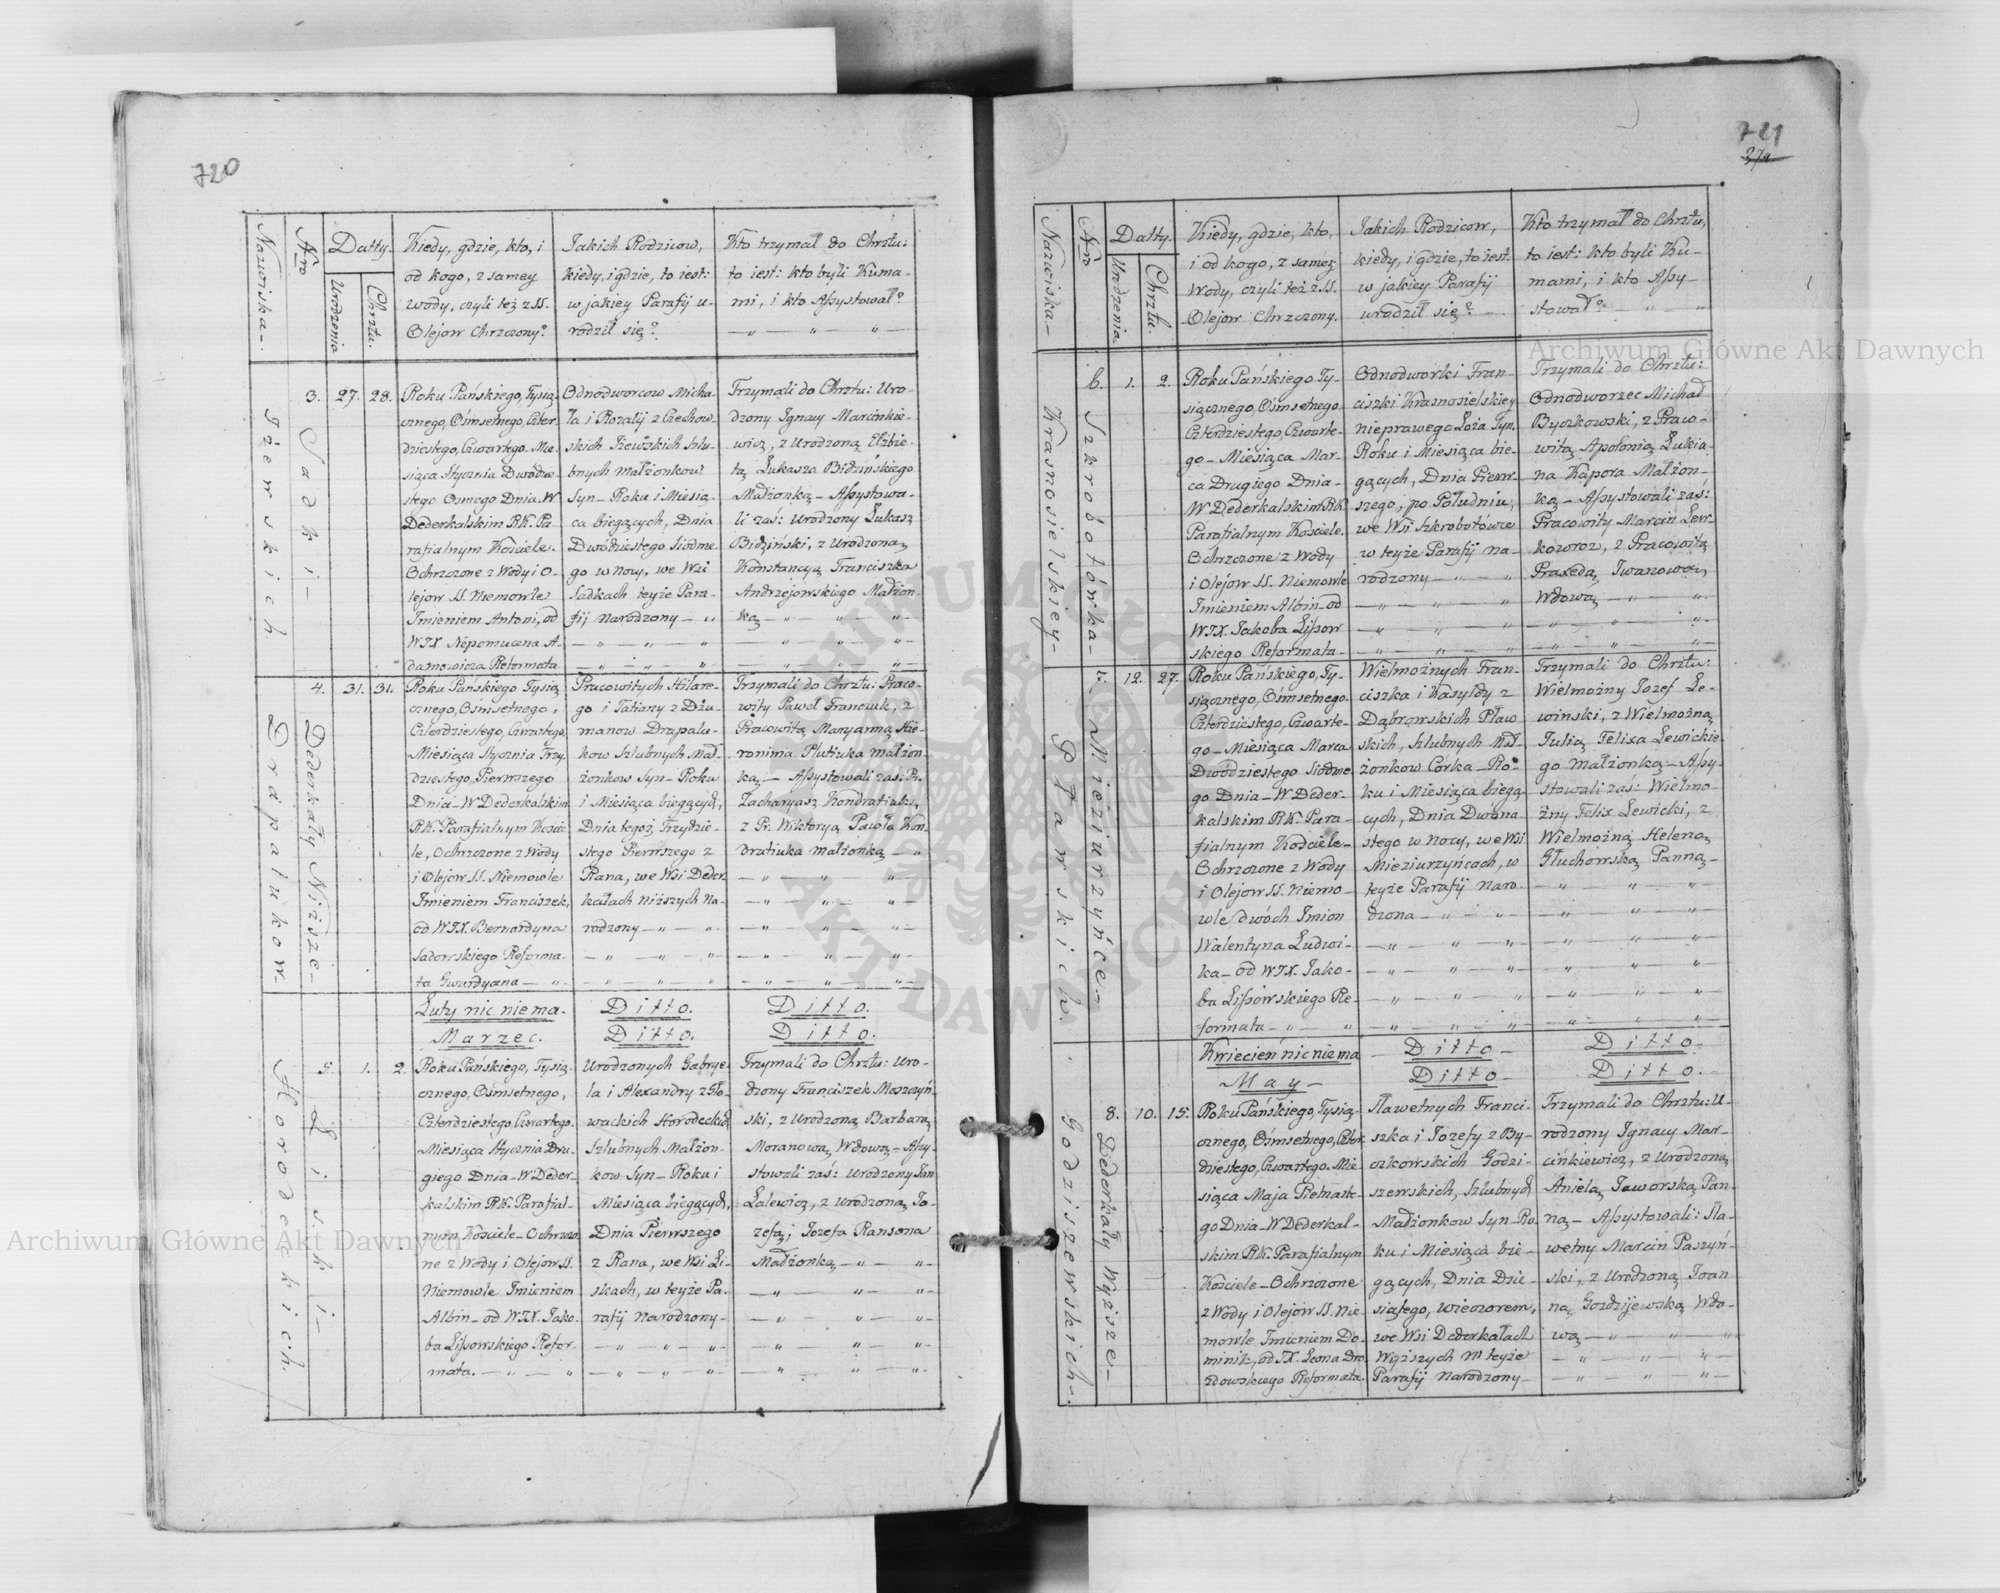 720
Nazwiska
Nro
Datty.
Urodzenia
Chrztu.
Kiedy, gdzie, kto, i
od kogo, z samey
Wody, czyli też z SS.
Olejow Chrzczony?
Jakich Rodzicow,
kiedy, i gdzie, to iest:
w jakiey Parafij u-
rodził się?
Kto trzymał do Chrztu:
to iest: kto byli Kuma-
mi, i kto Assystował?
Iżewskich
3. Sadki
27. 28.
Roku Pańskiego, Tysią-
cznego, Ośmsetnego, Czter-
dziestego, Czwartego Mie-
siąca Stycznia Dwódzie-
stego Osmego Dnia. W
Dederkalskim RK. Pa-
rafialnym Kościele.
Ochrzczone z Wody i O-
lejow SS. Niemowle
Imieniem Antoni, od
WJX Nepomucena A-
damowicza Reformata
Odnodworcow Micha-
ła i Rozalij z Czechow-
skich Iżewskich Szlu-
bnych małżonkow
Syn – Roku i Miesią-
ca biegących, Dnia
Dwódziestego Siodme-
go w Nocy, we Wsi
Sadkach teyże Para-
fij Narodzony
Trzymali do Chrztu: Uro-
dzony Ignacy Marcinkie-
wicz, z Urodzoną Elżbie-
tą Łukasza Bidzińskiego
Małżonką – Assystowa-
li zaś: Urodzony Łukasz
Bidziński, z Urodzoną
Konstancyą Franciszka
Andrzejowskiego Małżon-
ką
Drapalukow
4. Dederkały Niższe
31. 31.
Roku Pańskiego Tysią-
cznego, Osmsetnego,
Czterdziestego, Czwartego,
Miesiąca Stycznia Trzy-
dziestego, Pierwszego
Dnia – W Dederkalskim
RK. Parafialnym Koście-
le, Ochrzczone z Wody
i Olejow SS. Niemowle
Imieniem Franciszek,
od WJX. Bernardyna
Sadowskiego Reforma-
ta Gwardyana
Pracowitych Hilare-
go i Tatiany z Dżu-
manow Drapalu-
kow Szlubnych Mał-
żonkow Syn – Roku
i Miesiąca biegących,
Dnia tegoż Trzydzie-
stego Pierwszego z
Rana, we Wsi Deder-
kałach niższych Na-
rodzony
Trzymali do Chrztu: Praco-
wity Paweł Franczuk, z
Pracowitą Maryanną Hie-
ronima Plutiuka małżon-
ką – Assystowali zaś: Pr.
Zacharyasz Kondratiuk,
z Pr. Wiktoryą Pawła Kon-
dratiuka małżonką
Luty nic niema. Ditto. Ditto.
Marzec. Ditto. Ditto.
Horodeckich
5. Liski
1. 2.
Roku Pańskiego, Tysią-
cznego, Ośmsetnego,
Czterdziestego, Czwartego.
Miesiąca Stycznia Dru-
giego Dnia – W Deder-
kalskim RK. Parafial-
nym, Kościele – Ochrzczo-
ne z Wody i Olejow SS.
Niemowle Imieniem
Albin – od WJX. Jako-
ba Lissowskiego Refor-
mata.
Urodzonych Gabrye-
la i Alexandry z Gło-
wackich Horodeckich
Szlubnych Małżon-
kow Syn – Roku i
Miesiąca biegących,
Dnia Pierwszego
z Rana, we Wsi Li-
skach, w teyże Pa-
rafij Narodzony
Trzymali do Chrztu: Uro-
dzony Franciszek Moszczyń-
ski, z Urodzoną Barbarą
Moranową Wdową – Assy-
stowali zaś: Urodzony Jan
Lalewicz, z Urodzoną Jo-
zefą; Jozefa Ransona
Małżonką
721
274
Nazwiska
Nro
Datty.
Urodzenia
Chrztu.
Kiedy, gdzie, kto,
i od kogo, z samey
Wody, czyli też z SS.
Olejow Chrzczony.
Jakich Rodzicow,
kiedy, i gdzie, to iest
w jakiey Parafij
urodził się?
Kto trzymał do Chrztu,
to iest: kto byli Ku-
mami, i kto Assy-
stował?
Krasnosielskiey
6. Szkrobotówka
1. 2.
Roku Pańskiego Ty-
siącznego, Ośmsetnego
Czterdziestego, Czwarte-
go – Miesiąca Mar-
ca Drugiego Dnia –
W Dederkalskim RK
Parafialnym Kościele.
Ochrzczone z Wody
i Olejow SS. Niemowle
Imieniem Albin – od
WJX. Jakoba Lissow-
skiego Reformata
Odnodworki Fran-
ciszki Krasnosielskiey
nieprawego Łoża Syn.
Roku i Miesiąca bie-
gących, Dnia Pierw-
szego, po Południu,
we Wsi Szkrobotówce
w teyże Parafij na-
rodzony
Trzymali do Chrztu:
Odnodworzec Michał
Byczkowski, z Praco-
witą Apolonią Łukia-
na Kapora Małżon-
ką – Assystowali zaś:
Pracowity Marcin Lew-
kowroz, z Pracowitą
Praxedą Iwanową
Wdową
Pławskich.
7. Mieziurzyńce
12. 27.
Roku Pańskiego, Ty-
siącznego, Ośmsetnego.
Czterdziestego, Czwarte-
go – Miesiąca Marca
Dwódziestego Siodme-
go Dnia – W Deder-
kalskim RK. Para-
fialnym Kościele –
Ochrzczone z Wody
i Olejow SS. Niemo-
wle dwóch Imion
Walentyna Ludwi-
ka – od WJX. Jako-
ba Lissowskiego Re-
formata
Wielmożnych Fran-
ciszka i Kasyldy z
Dąbrowskich Pław-
skich, Szlubnych Mał-
żonkow Córka – Ro-
ku i Miesiąca biegą-
cych, Dnia Dwuna-
stego w Nocy, we Wsi
Mieziurzyńcach, w
teyże Parafij naro-
dzona
Trzymali do Chrztu:
Wielmożny Jozef Le-
winski, z Wielmożną
Julią Felixa Lewickie-
go małżonką – Assy-
stowali zaś: Wielmo-
żny Felix Lewicki, z
Wielmożną Heleną
Głuchowską Panną
Kwiecień nic niema Ditto Ditto
May Ditto Ditto.
Godziszewskich
8. Dederkały Wyższe
10. 15.
Roku Pańskiego, Tysią-
cznego, Ośmsetnego, Czter-
dziestego, Czwartego. Mie-
siąca Maja Pietnaste-
go Dnia – W Dederkal-
skim RK. Parafialnym
Kościele – Ochrzczone
z Wody i Olejow SS. Nie-
mowle Imieniem Do-
minik, od JX. Leona Dro-
zdowskiego Reformata.
Sławetnych Franci-
szka i Jozefy z By-
czkowskich Godzi-
szewskich, Szlubnych
Małżonkow Syn – Ro-
ku i Miesiąca bie-
gących, Dnia Dzie-
siątego, wieczorem,
we Wsi Dederkałach
Wyższych w teyże
Parafij Narodzony
Trzymali do Chrztu: U-
rodzony Ignacy Mar-
cińkiewicz, z Urodzoną
Anielą Jaworską Pan-
ną – Assystowali: Sła-
wetny Marcin Paszyń-
ski, z Urodzoną Joan-
ną Gozdzijewską Wdo-
wą
Archiwum Główne Akt Dawnych
Archiwum Główne Akt Dawnych